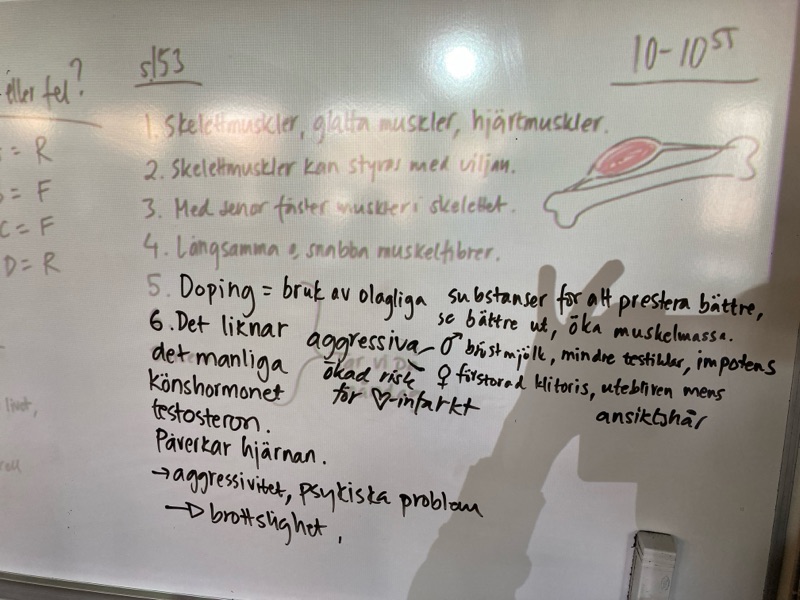 eller fel?
= R
= F
C = F
D = R
s153
10-10ST
1. Skelettmuskler, glatta muskler, hjärtmuskler.
2. Skelettmuskler kan styras med viljan.
3. Med senor fäster muskler i skelettet.
4. Långsamma o, snabba muskelfibrer.
5. Doping = bruk av olagliga substanser för att prestera bättre,
se bättre ut, öka muskelmassa.
6. Det liknar
det manliga
könshormonet
testosteron.
Påverkar hjärnan.
→ aggressivitet, psykiska problem
→ brottslighet,
aggressiva
ökad risk
för ♡-infarkt
♂ bröstmjölk, mindre testiklar, impotens
♀ förstorad klitoris, utebliven mens
ansiktshår
livet,